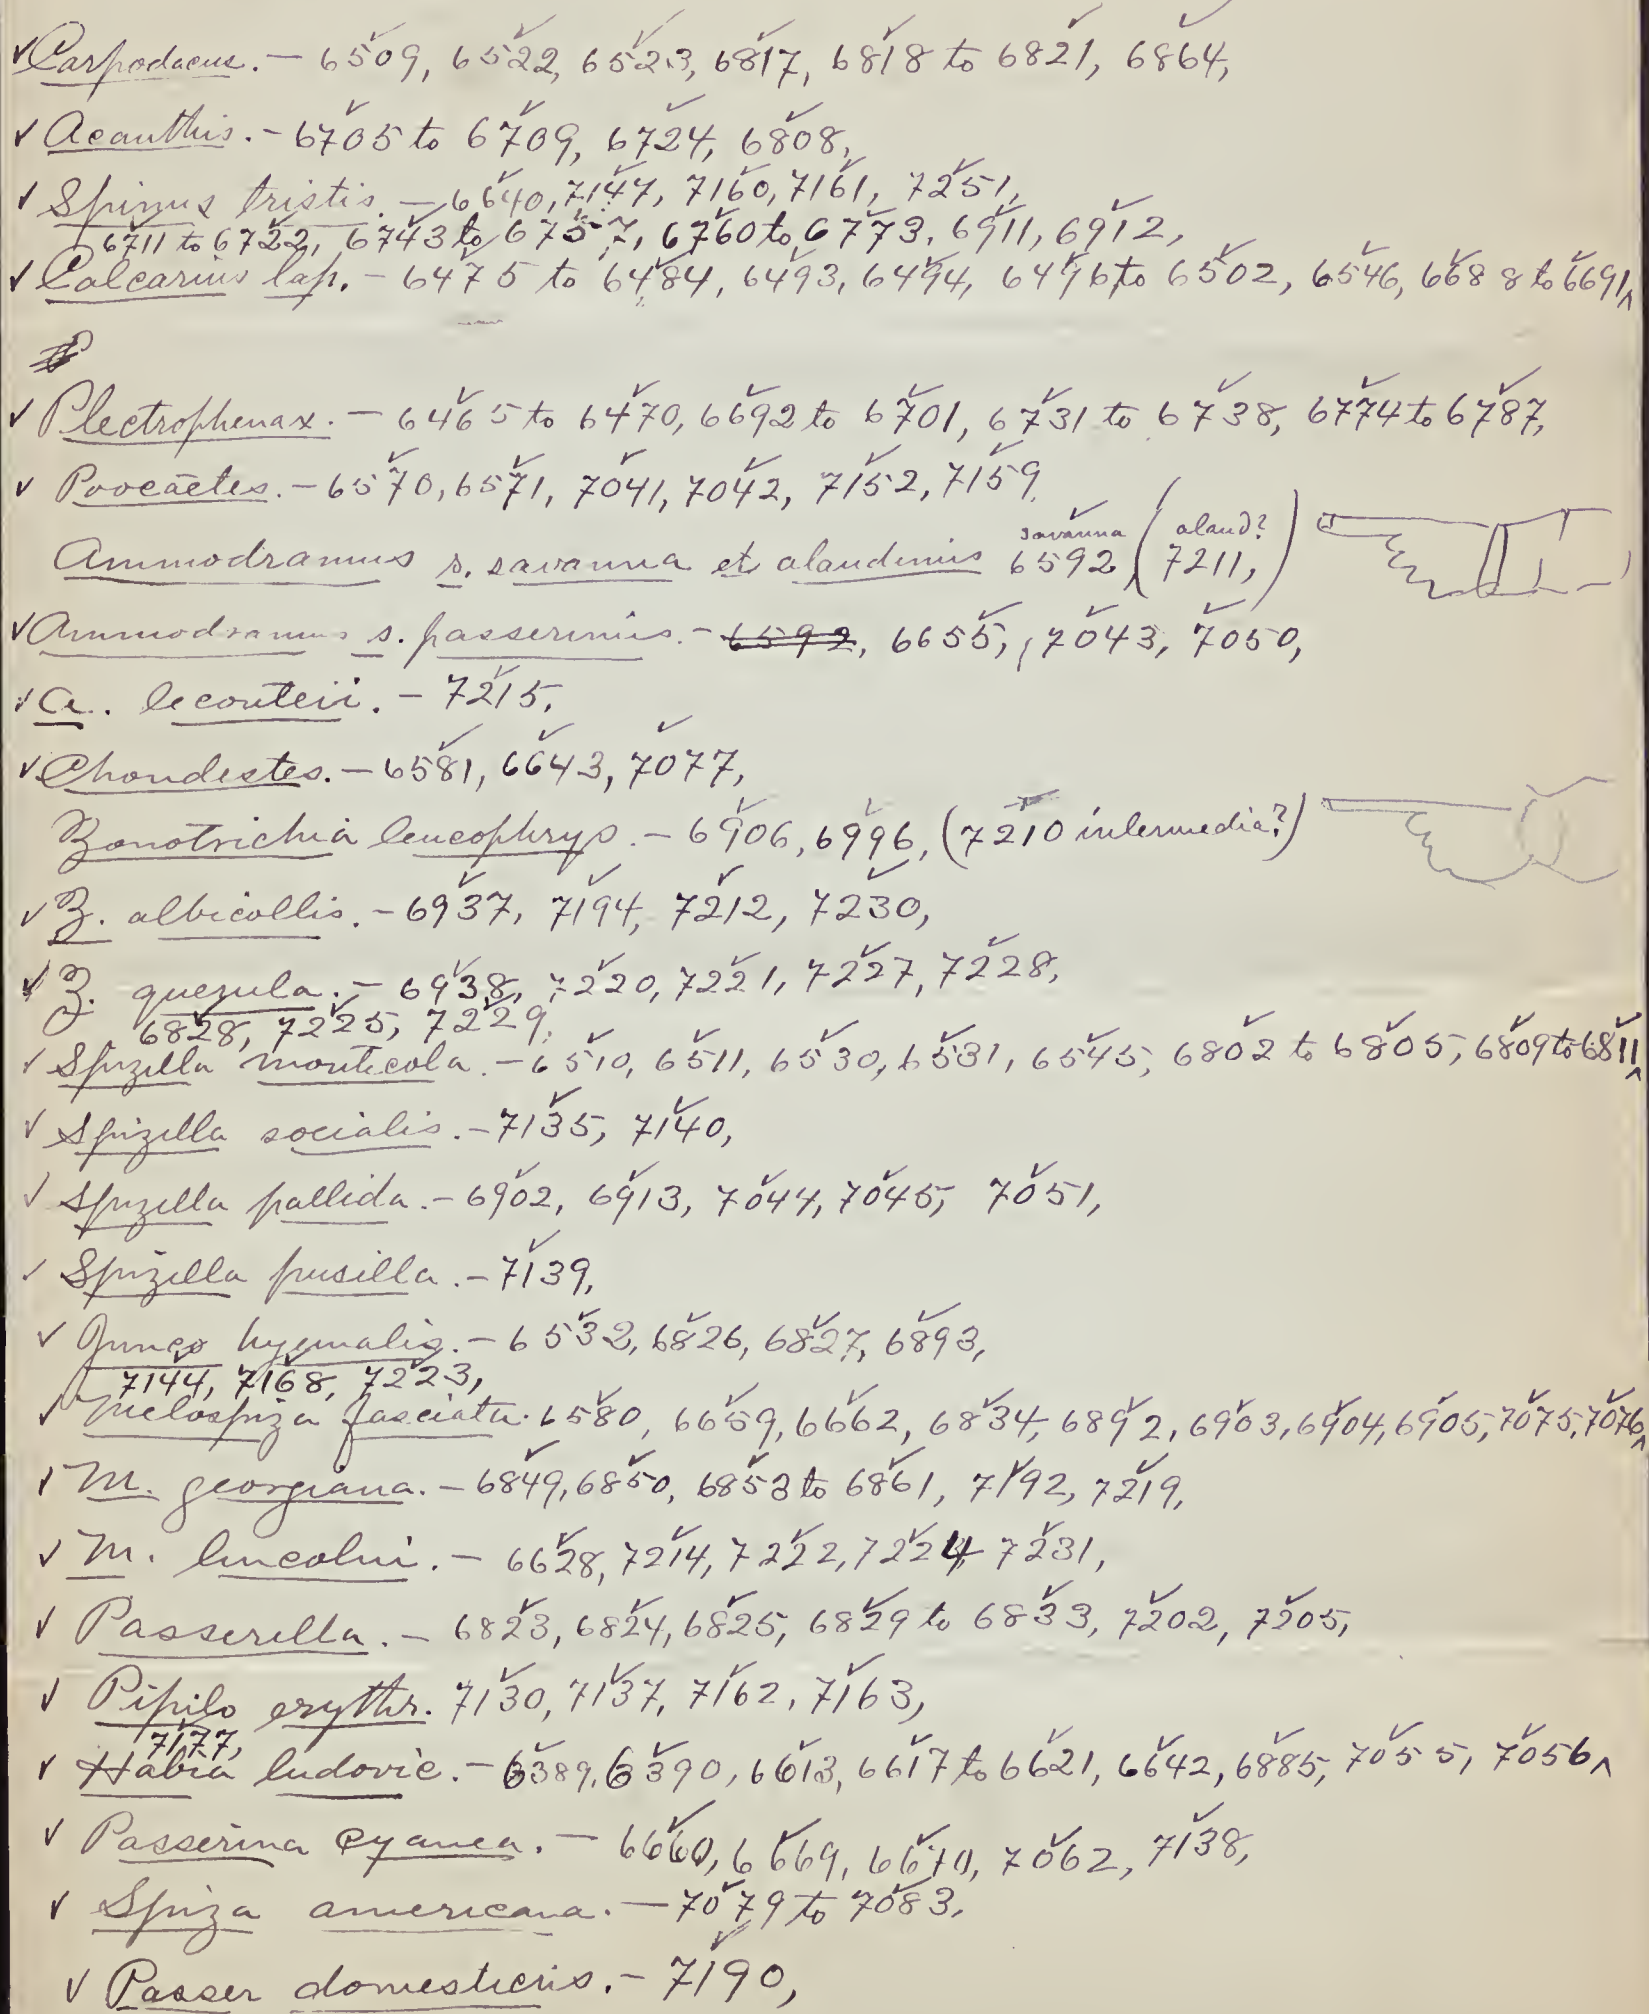 ✓ Carpodacus. — 6509, 6522, 6523, 6817, 6818 to 6821, 6864,
✓ Acanthis. — 6705 to 6709, 6724, 6808,
✓ Spinus tristis. — 6640, 7147, 7160, 7161, 7251,
6711 to 6722, 6743 to 6757, 6760 to 6773, 6911, 6912,
✓ Calcarius lap. — 6475 to 6484, 6493, 6494, 6496 to 6502, 6546, 6688 to 6691,^
✓ Plectrophenax. — 6465 to 6470, 6692 to 6701, 6731 to 6738, 6774 to 6787,
✓ Poocaetes. — 6570, 6571, 7041, 7042, 7152, 7159,
savanna aland?
Ammodramus s. savanna et alaudinus 6592, (7211,)
✓ Ammodramus s. passerinus. — 6592, 6655, 7043, 7050,
✓ A. leconteii. — 7215,
✓ Chondestes. — 6581, 6643, 7077,
Zonotrichia leucophrys. — 6906, 6996, (7210 intermedia?)
✓ Z. albicollis. — 6937, 7194, 7212, 7230,
✓ Z. querula. — 6938, 7220, 7221, 7227, 7228,
6828, 7225, 7229,
✓ Spizella monticola. — 6510, 6511, 6530, 6531, 6545, 6802 to 6805, 6809 to 6811,^
✓ Spizella socialis. — 7135, 7140,
✓ Spizella pallida. — 6902, 6913, 7044, 7045, 7051,
✓ Spizella pusilla. — 7139,
✓ Junco hyemalis. — 6532, 6826, 6827, 6893,
7144, 7168, 7223,
✓ Melospiza fasciata. 6580, 6659, 6662, 6834, 6892, 6903, 6904, 6905, 7075, 7076,^
✓ M. georgiana. — 6849, 6850, 6853 to 6861, 7192, 7219,
✓ M. lincolni. — 6628, 7214, 7222, 7224, 7231,
✓ Passerella. — 6823, 6824, 6825, 6829 to 6833, 7202, 7205,
✓ Pipilo erythr. 7130, 7137, 7162, 7163,
7177,
✓ Habia ludovic. — 6389, 6390, 6613, 6617 to 6621, 6642, 6885, 7055, 7056,^
✓ Passerina cyanea. — 6660, 6669, 6670, 7062, 7138,
✓ Spiza americana. — 7079 to 7083,
✓ Passer domesticus. — 7190,